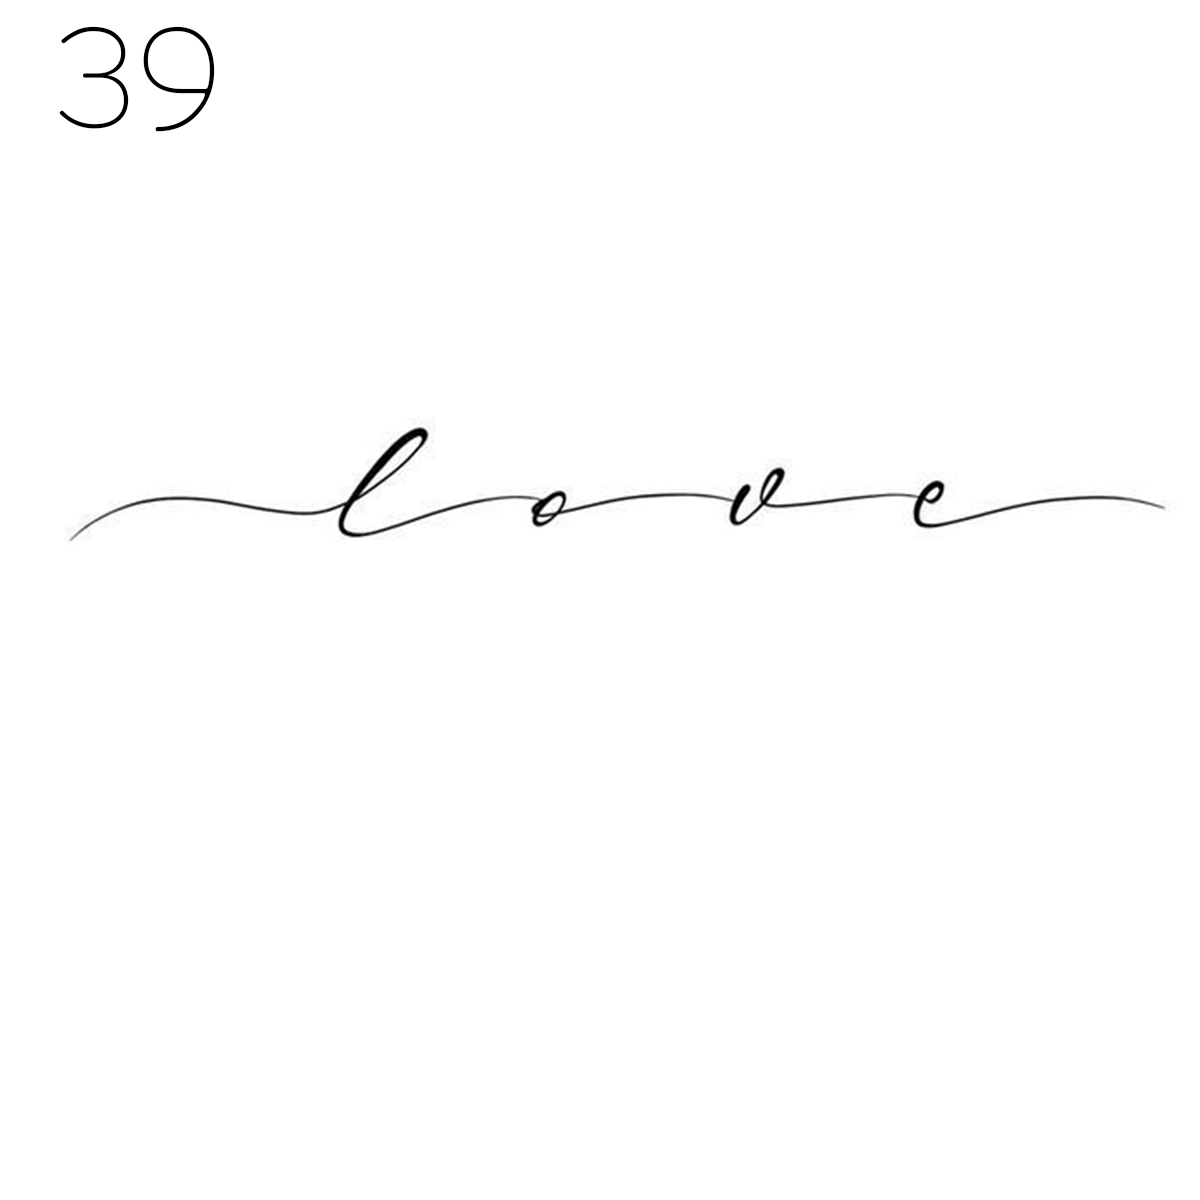 39
love